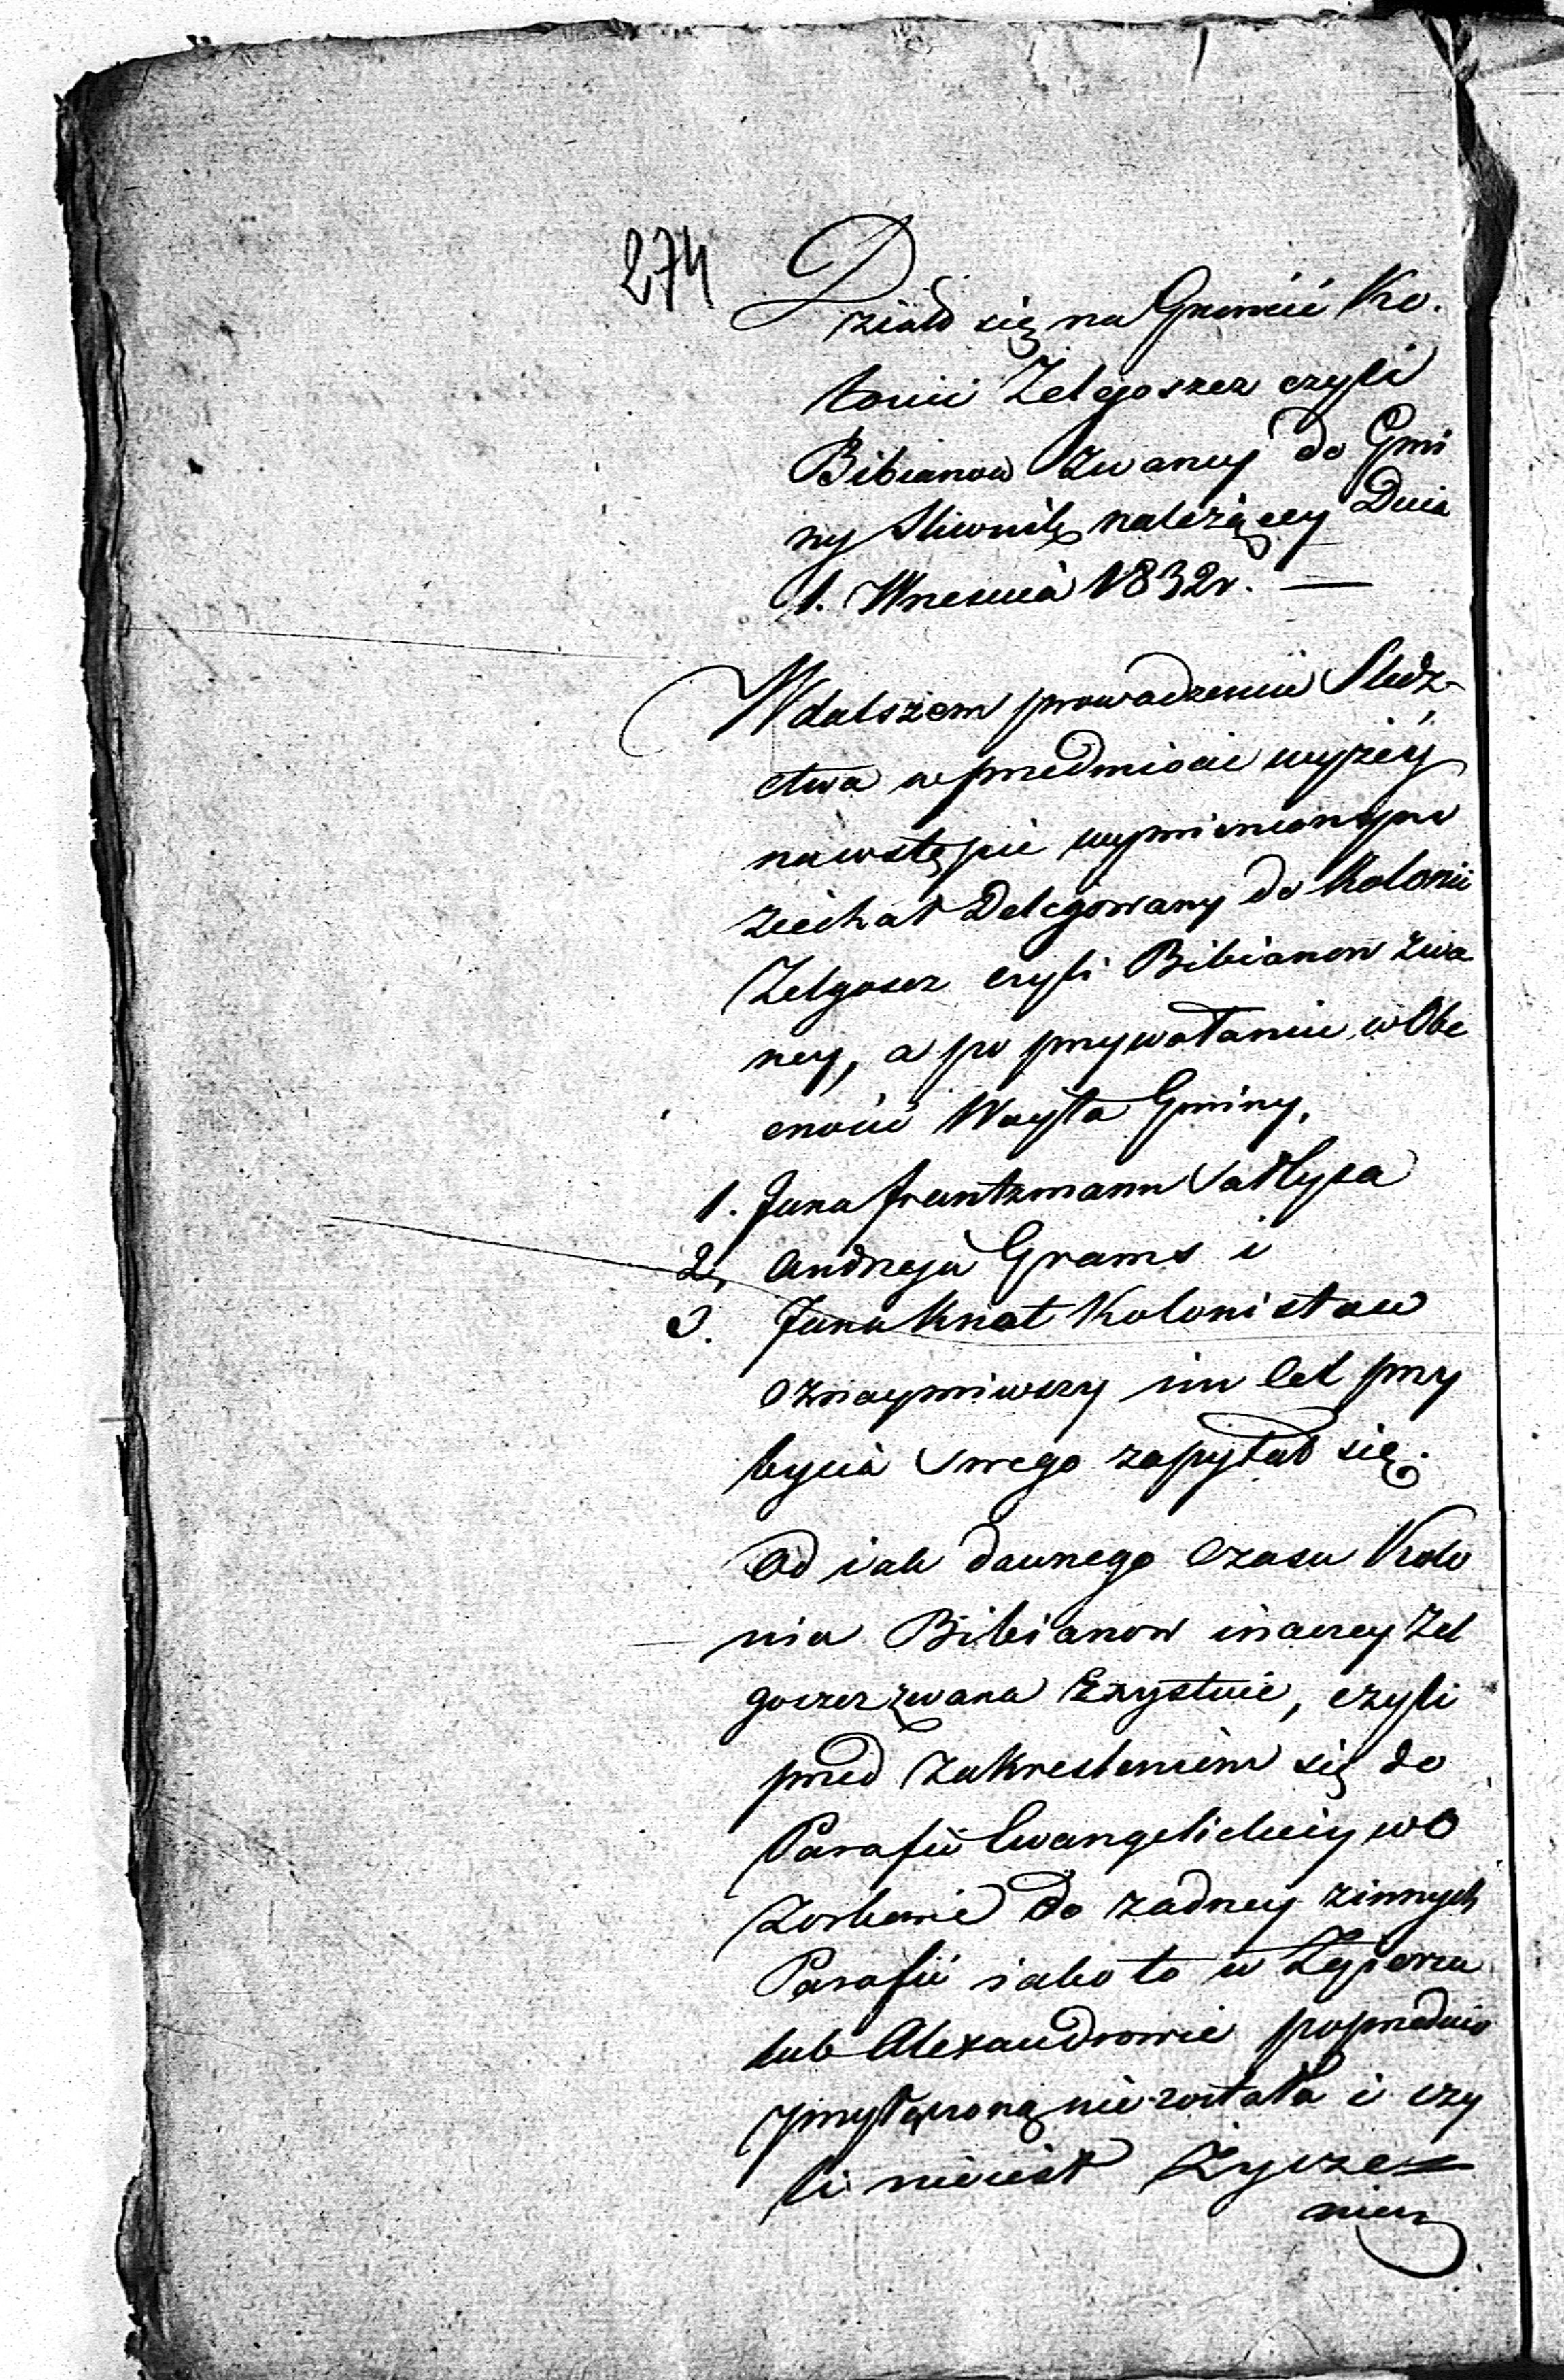 274
Działo się na Gruncie Ko.
lonii Zelgoszcz czyli
Bibianow zwaney do Gmi
ny Sliwniki należącey Dnia
1. Wrzesnia 1832r. —
W dalszem prowadzeniu Sledz-
ctwa w przedmiocie wyżéy
na wstępie wymienionym
ziechał Delegowany do Kolonii
Zelgoszcz czyli Bibianow zwa
ney, a po przywołaniu w Obe
cności Woyta Gminy,
1. Jana Frantzmann Sołtysa
2, Andrzeja Grams i
3. Jana Knot Kolonistow
oznaymiwszy im Cel przy
bycia swego zapytał się.
Od iak dawnego Czasu Kolo
nia Bibianow inaczey Zel
goszcz zwana Exystuie, czyli
przed zakresleniem się do
Parafii Ewangelickiey w O
zorkowie do żadney z innych
Parafii iako to w Zgierzu
lub Alexandrowie poprzednio
przyłączoną nie została i czy
li nie iest Życze
niem